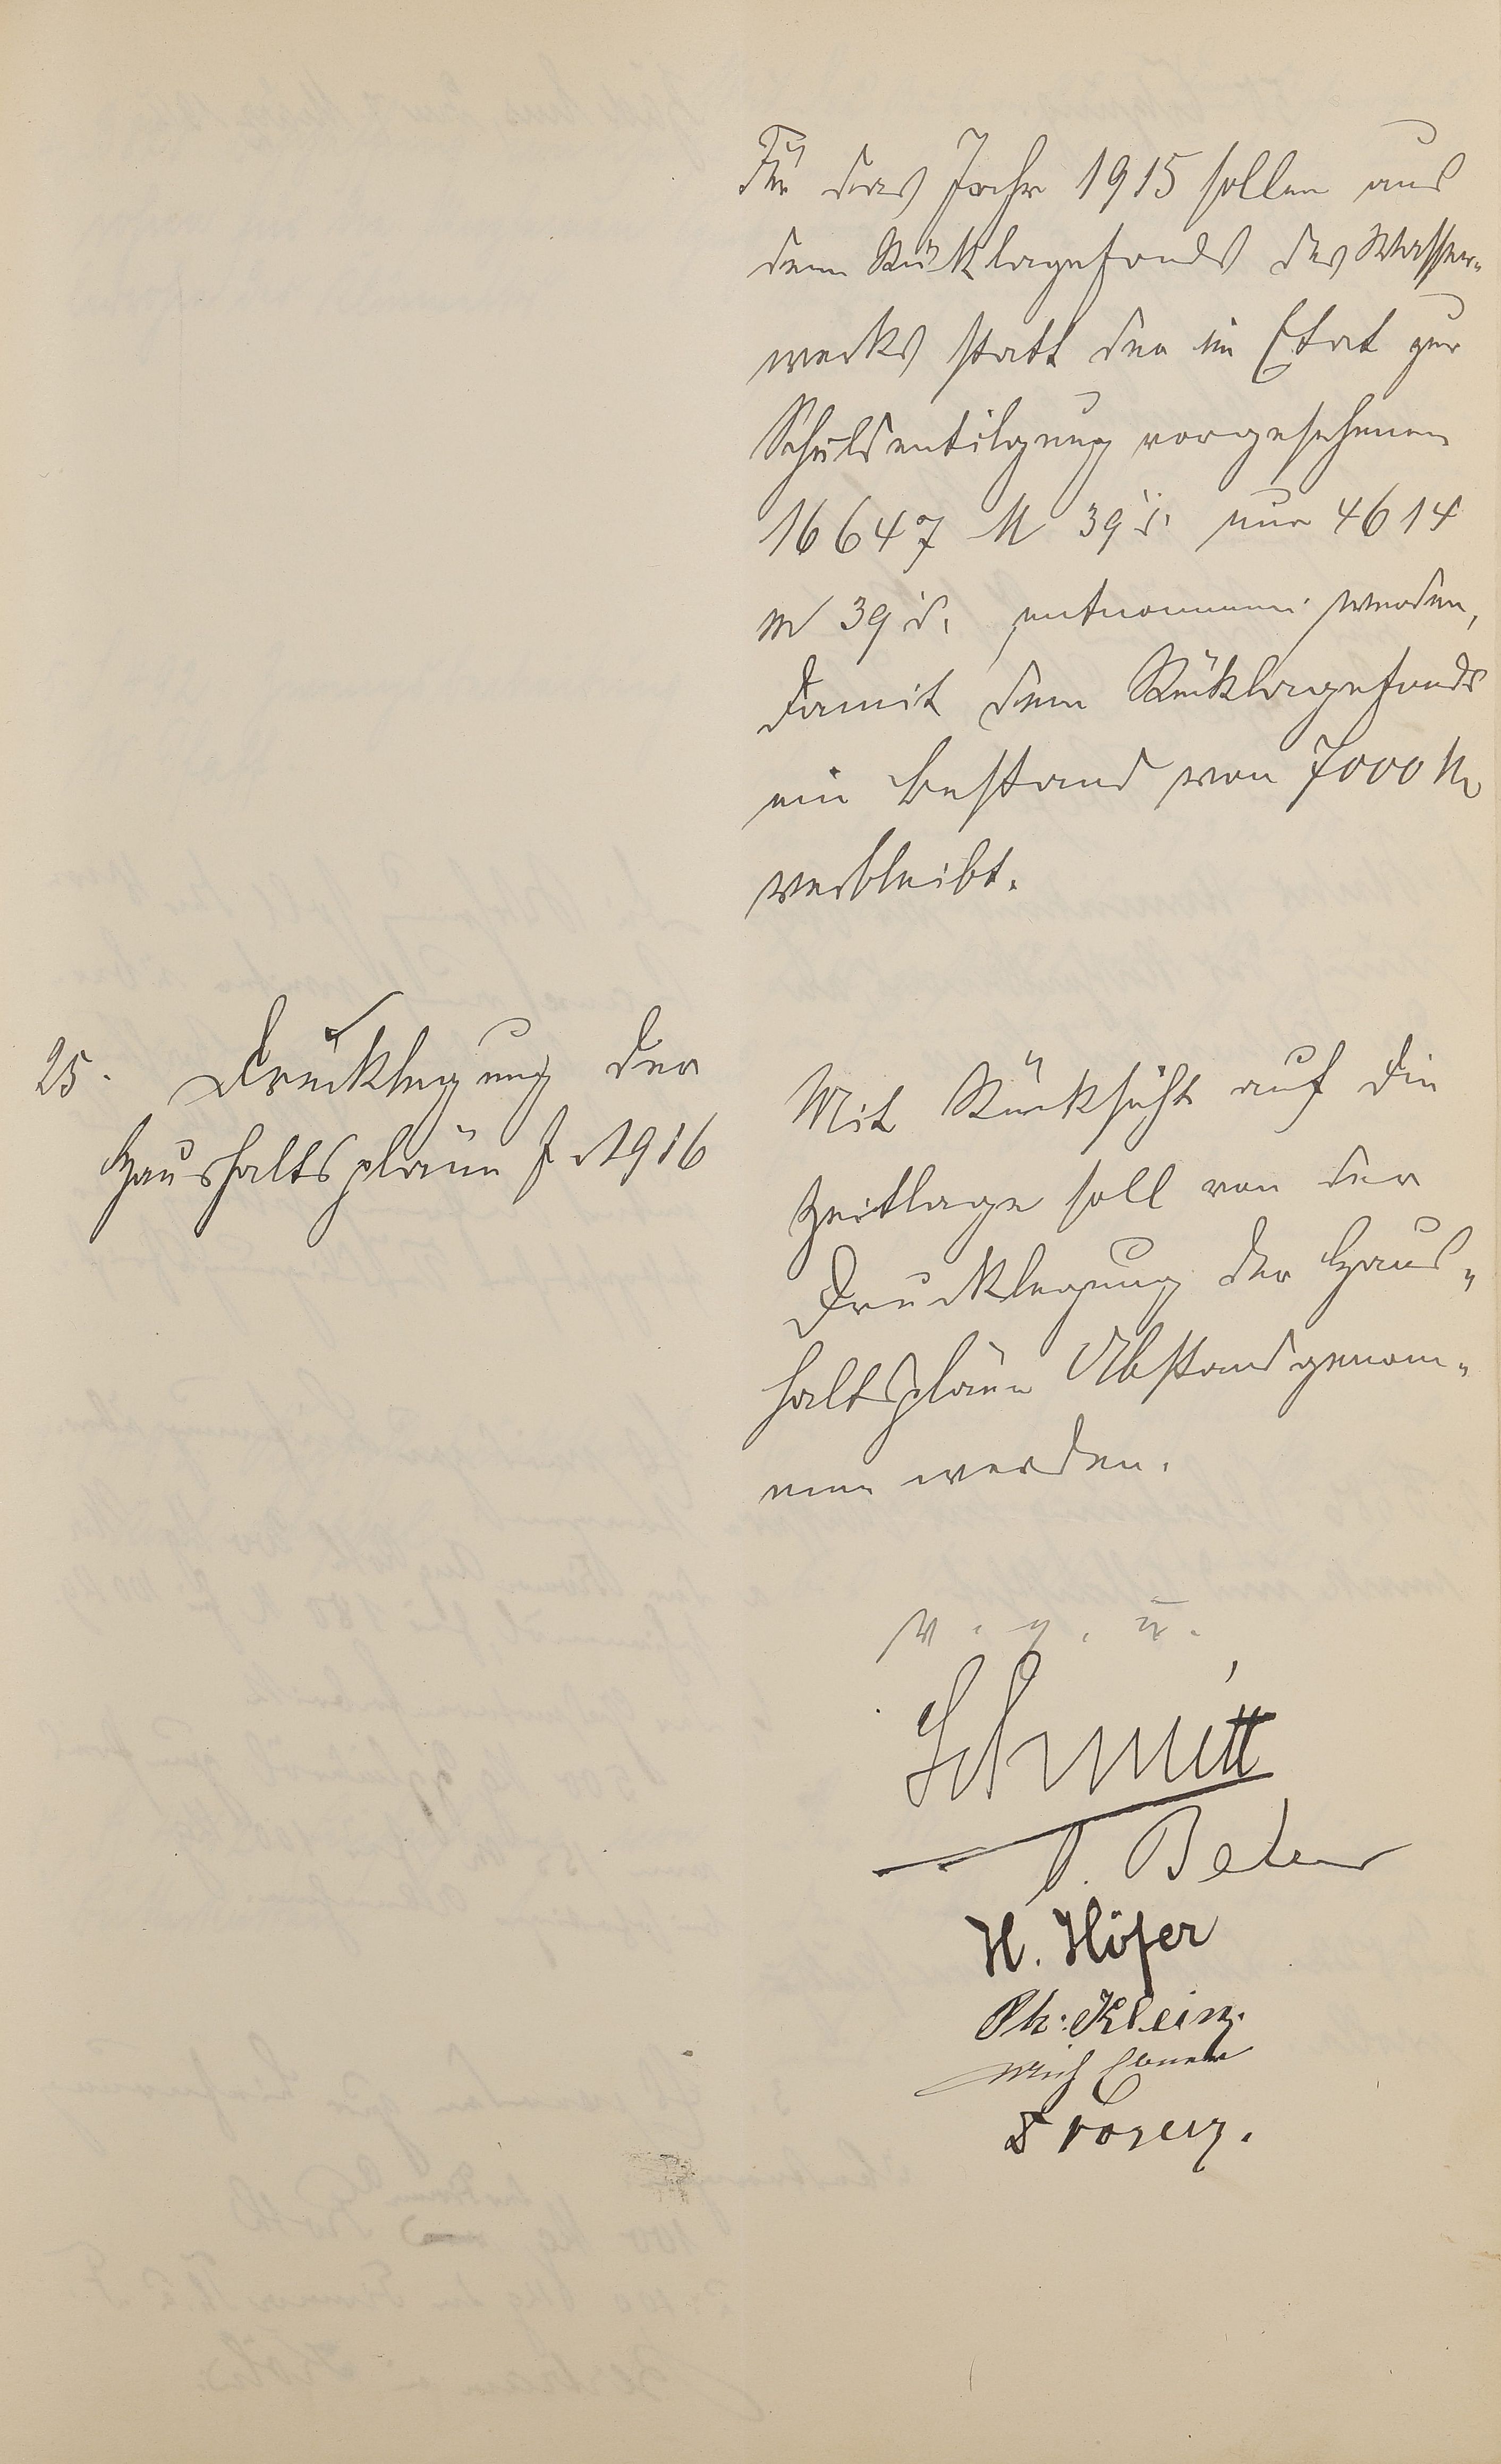 Für das Jahr 1915 sollen aus
dem Rücklagefonds des Wasser-
werks statt der im Etat zur
Schuldentilgung vorgesehenen
16647 M 39 d. nur 4614
M 39 d. entnommen werden,
damit dem Rücklagefonds
ein Bestand von 7000 M
verbleibt.
25. Drucklegung der
Haushaltspläne f. 1916
Mit Rücksicht auf die
Zeitlage soll von der
Drucklegung der Haus-
haltspläne Abstand genom-
men werden.
v. g. u.
Schmitt
H. Höfer
Ph. Klein.